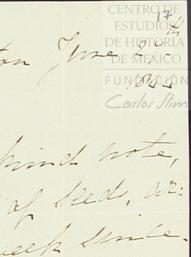 17
CENTRO DE
ESTUDIOS
DE HISTORIA
DE MÉXICO
FUNDACIÓN
Carlos Slim
ton June
kind note,
of seeds, &c.
week since